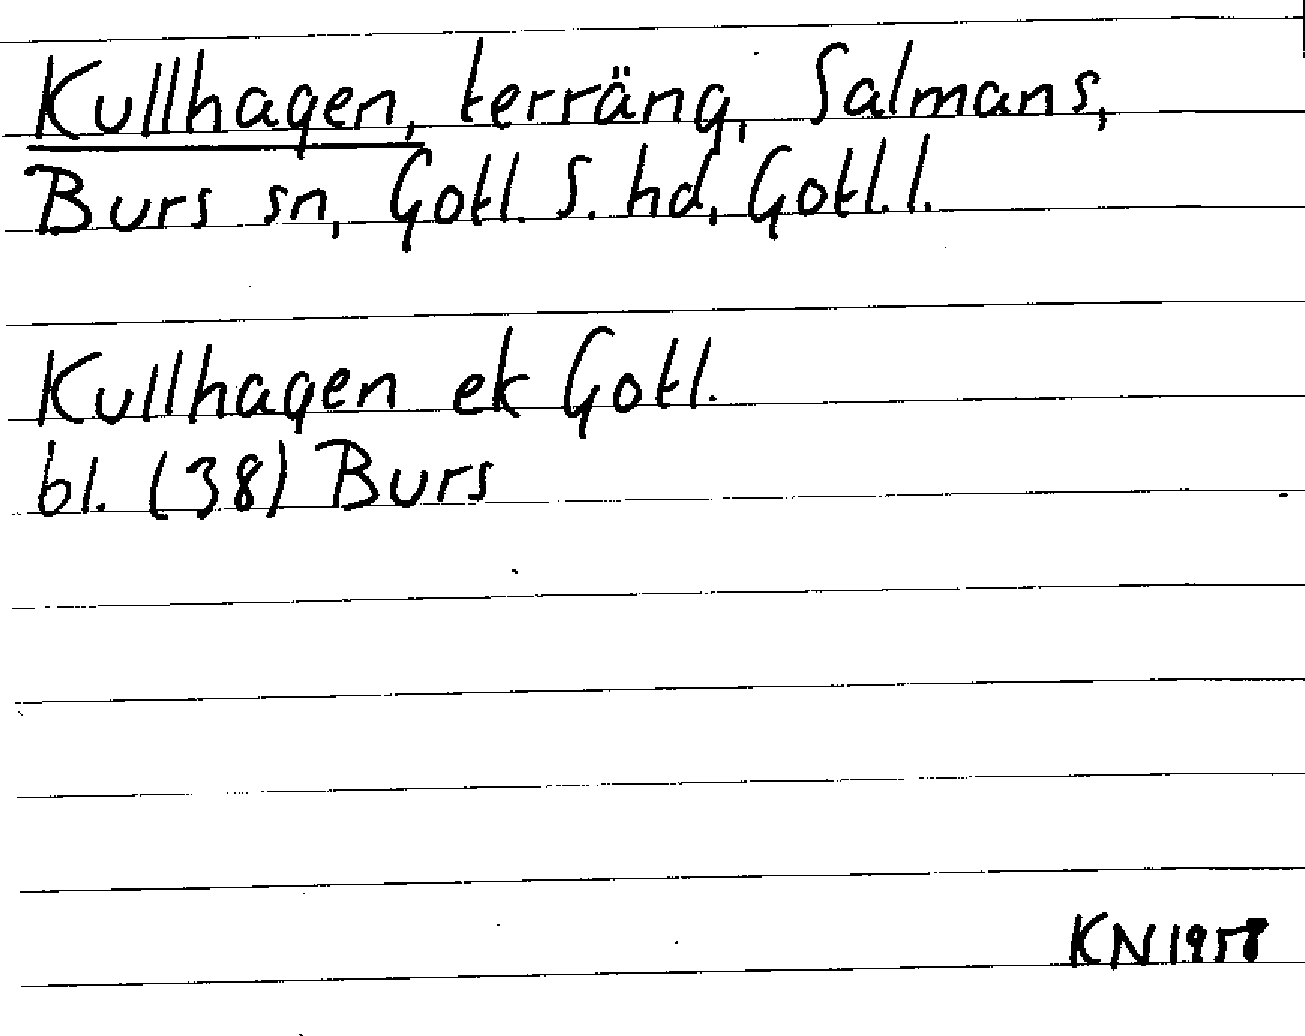 Kullhagen, terräng, Salmans,
Burs sn, Gotl. S. hd, Gotl. l.
Kullhagen ek Gotl.
bl. (38) Burs
KN 1958